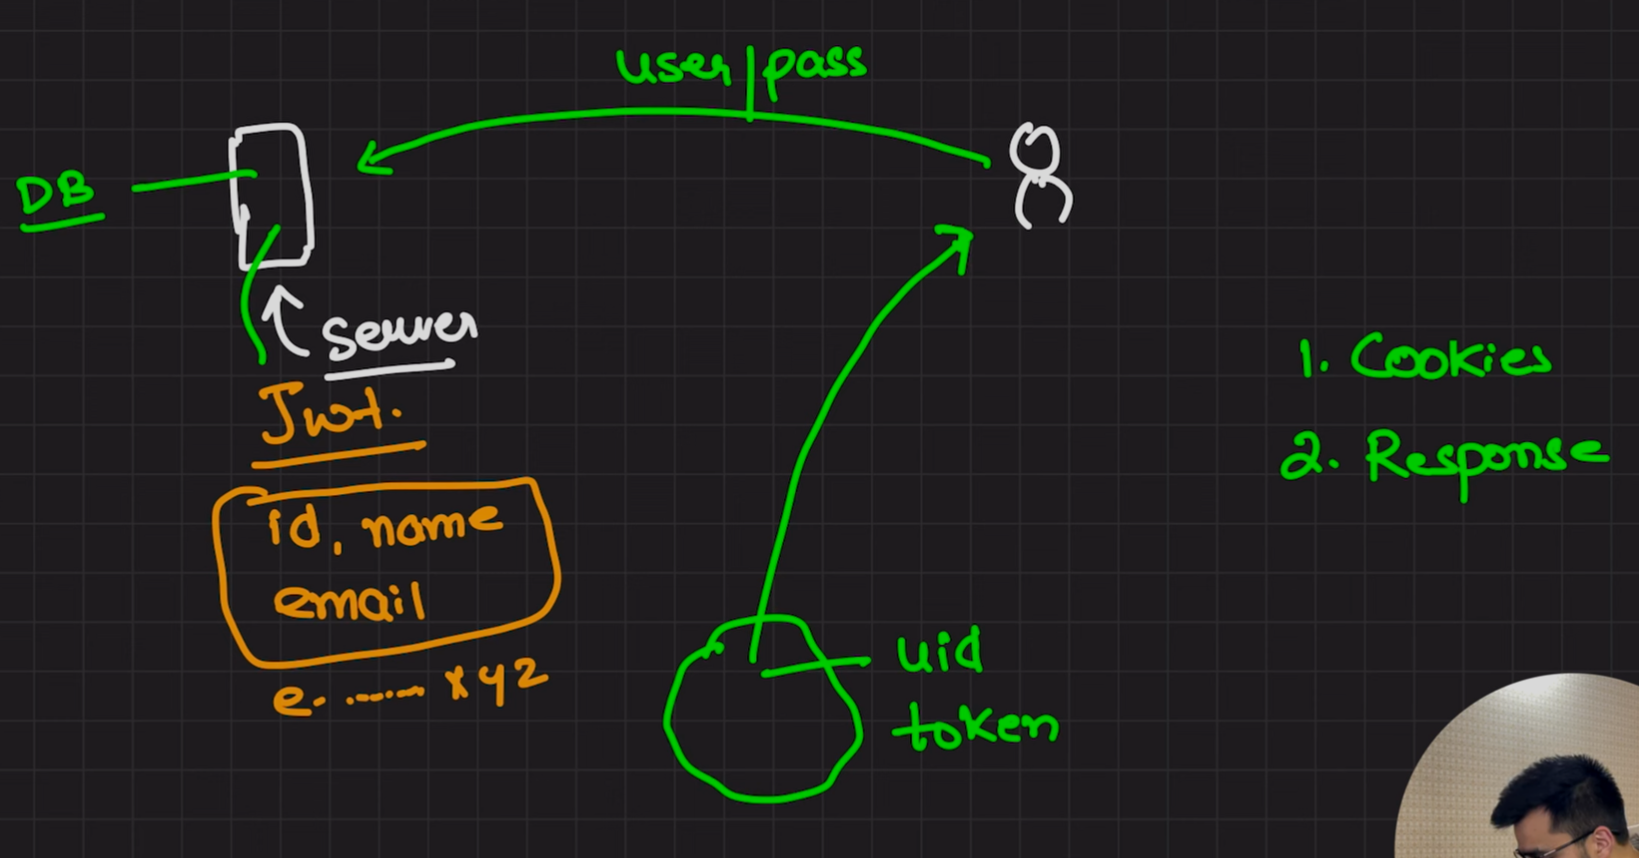 user/pass
DB
server
Jwt.
id, name
email
e. ....... xyz
uid
token
1. Cookies
2. Response